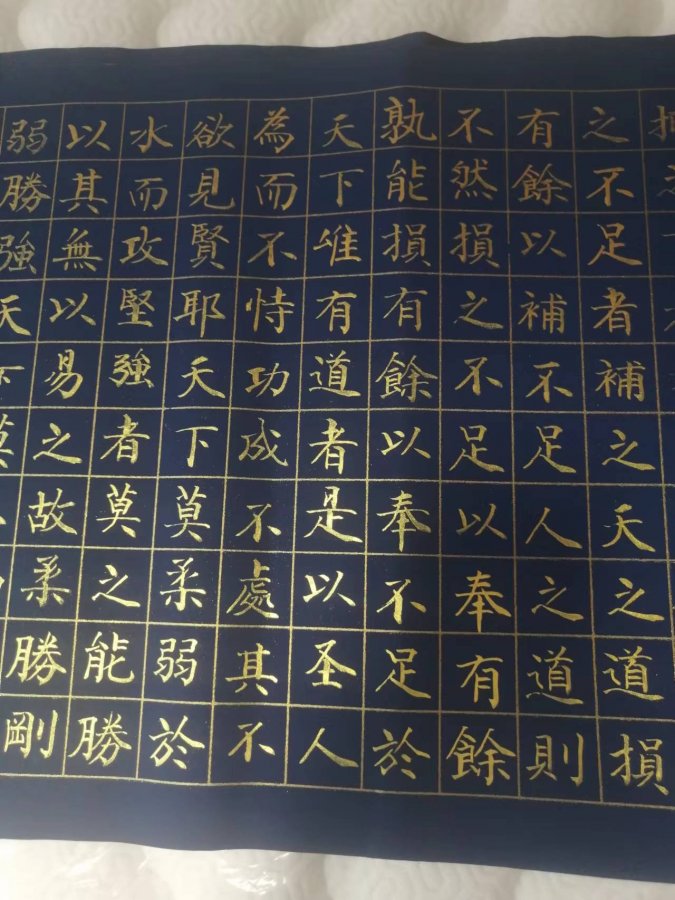 之不足者補之天之道損
有餘以補不足人之道則
不然損之不足以奉有餘
孰能損有餘以奉不足於
天下唯有道者是以圣人
為而不恃功成不處其不
欲見賢耶天下莫柔弱於
水而攻堅強者莫之能勝
以其無以易之故柔勝剛
弱勝強天下莫